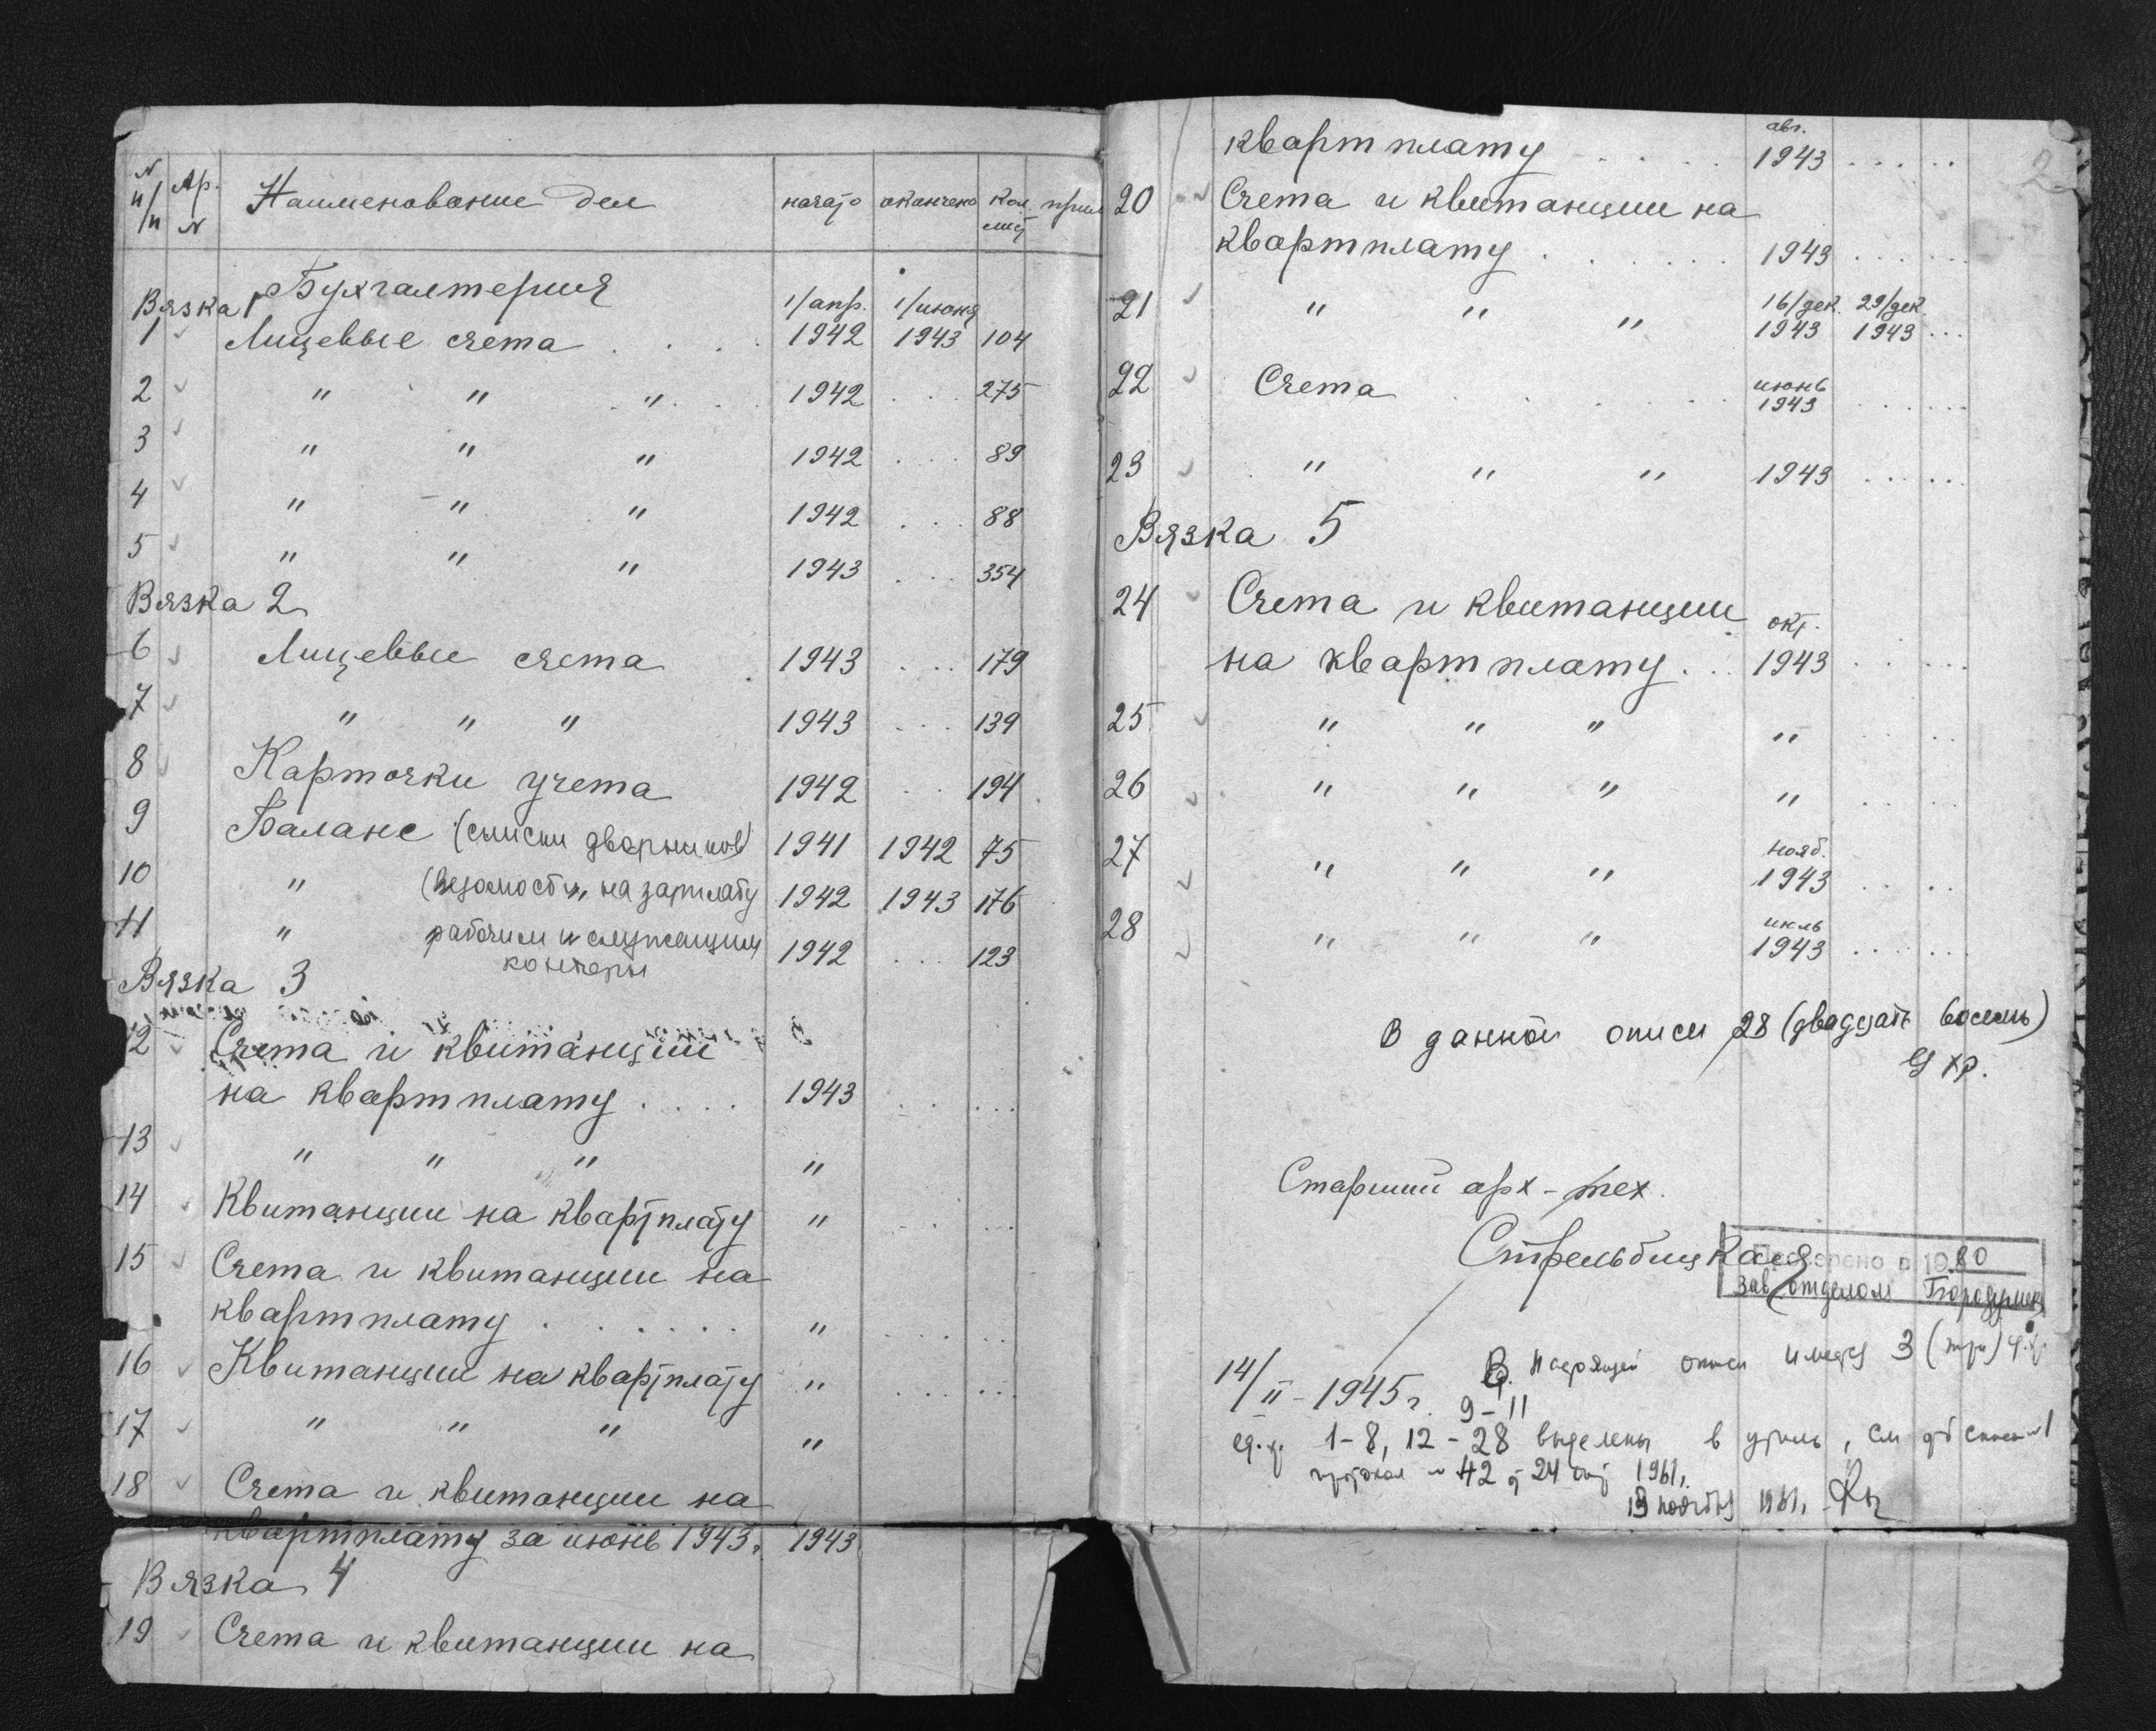 № п/п Ар. № Наименование дел начато окончено кол. лист прим
Бухгалтерия
Вязка 1
1/апр. 1/июня
1 Лицевые счета . . . . 1942 1943 104
2 " " " 1942 . . . 275
3 " " " 1942 . . . 89
4 " " " 1942 . . . 88
5 " " " 1943 . . . 354
Вязка 2
6 Лицевые счета 1943 . . . 179
7 " " " 1943 . . . 139
8 Карточки учета 1942 . . 194
9 Баланс (списки дворников) 1941 1942 75
10 " (ведомости на зарплату 1942 1943 176
11 " рабочим и служащим 1942 . . . 123
конторы
Вязка 3
12 Счета и квитанции
на квартплату . . . . 1943 . . . . .
13 " " " "
14 Квитанции на квартплату " . . . .
15 Счета и квитанции на
квартплату . . . . . . " . . . . .
16 Квитанции на квартплату " . . . . .
17 " " " "
18 Счета и квитанции на
квартплату за июнь 1943. 1943
Вязка 4
19 Счета и квитанции на
2
авг.
квартплату . . . . 1943 . . . . .
20 Счета и квитанции на
квартплату . . . . . . 1943 . . . . . .
16/дек. 29/дек.
21 " " " 1943 1943 . . .
июнь
22 Счета . . . . . 1943 . . . . . .
23 " " " 1943 . . . . .
Вязка 5
24 Счета и квитанции
окт.
на квартплату . . . 1943 . . . . .
25 " " " " . . . .
26 " " " " . . . .
нояб.
27 " " " 1943 . . . .
июль
28 " " " 1943 . . . . . .
В данной описи 28 (двадцать восемь)
ед хр.
Старший арх-тех.
Стрельбицкая
Проверено в 1980
Зав отделом
14/II-1945 г.
В описи 3 (три)
9-11
ед. х. 1-8, 12-28 выделены в утиль, см
протокол № 42 от 24 1961.
1961.